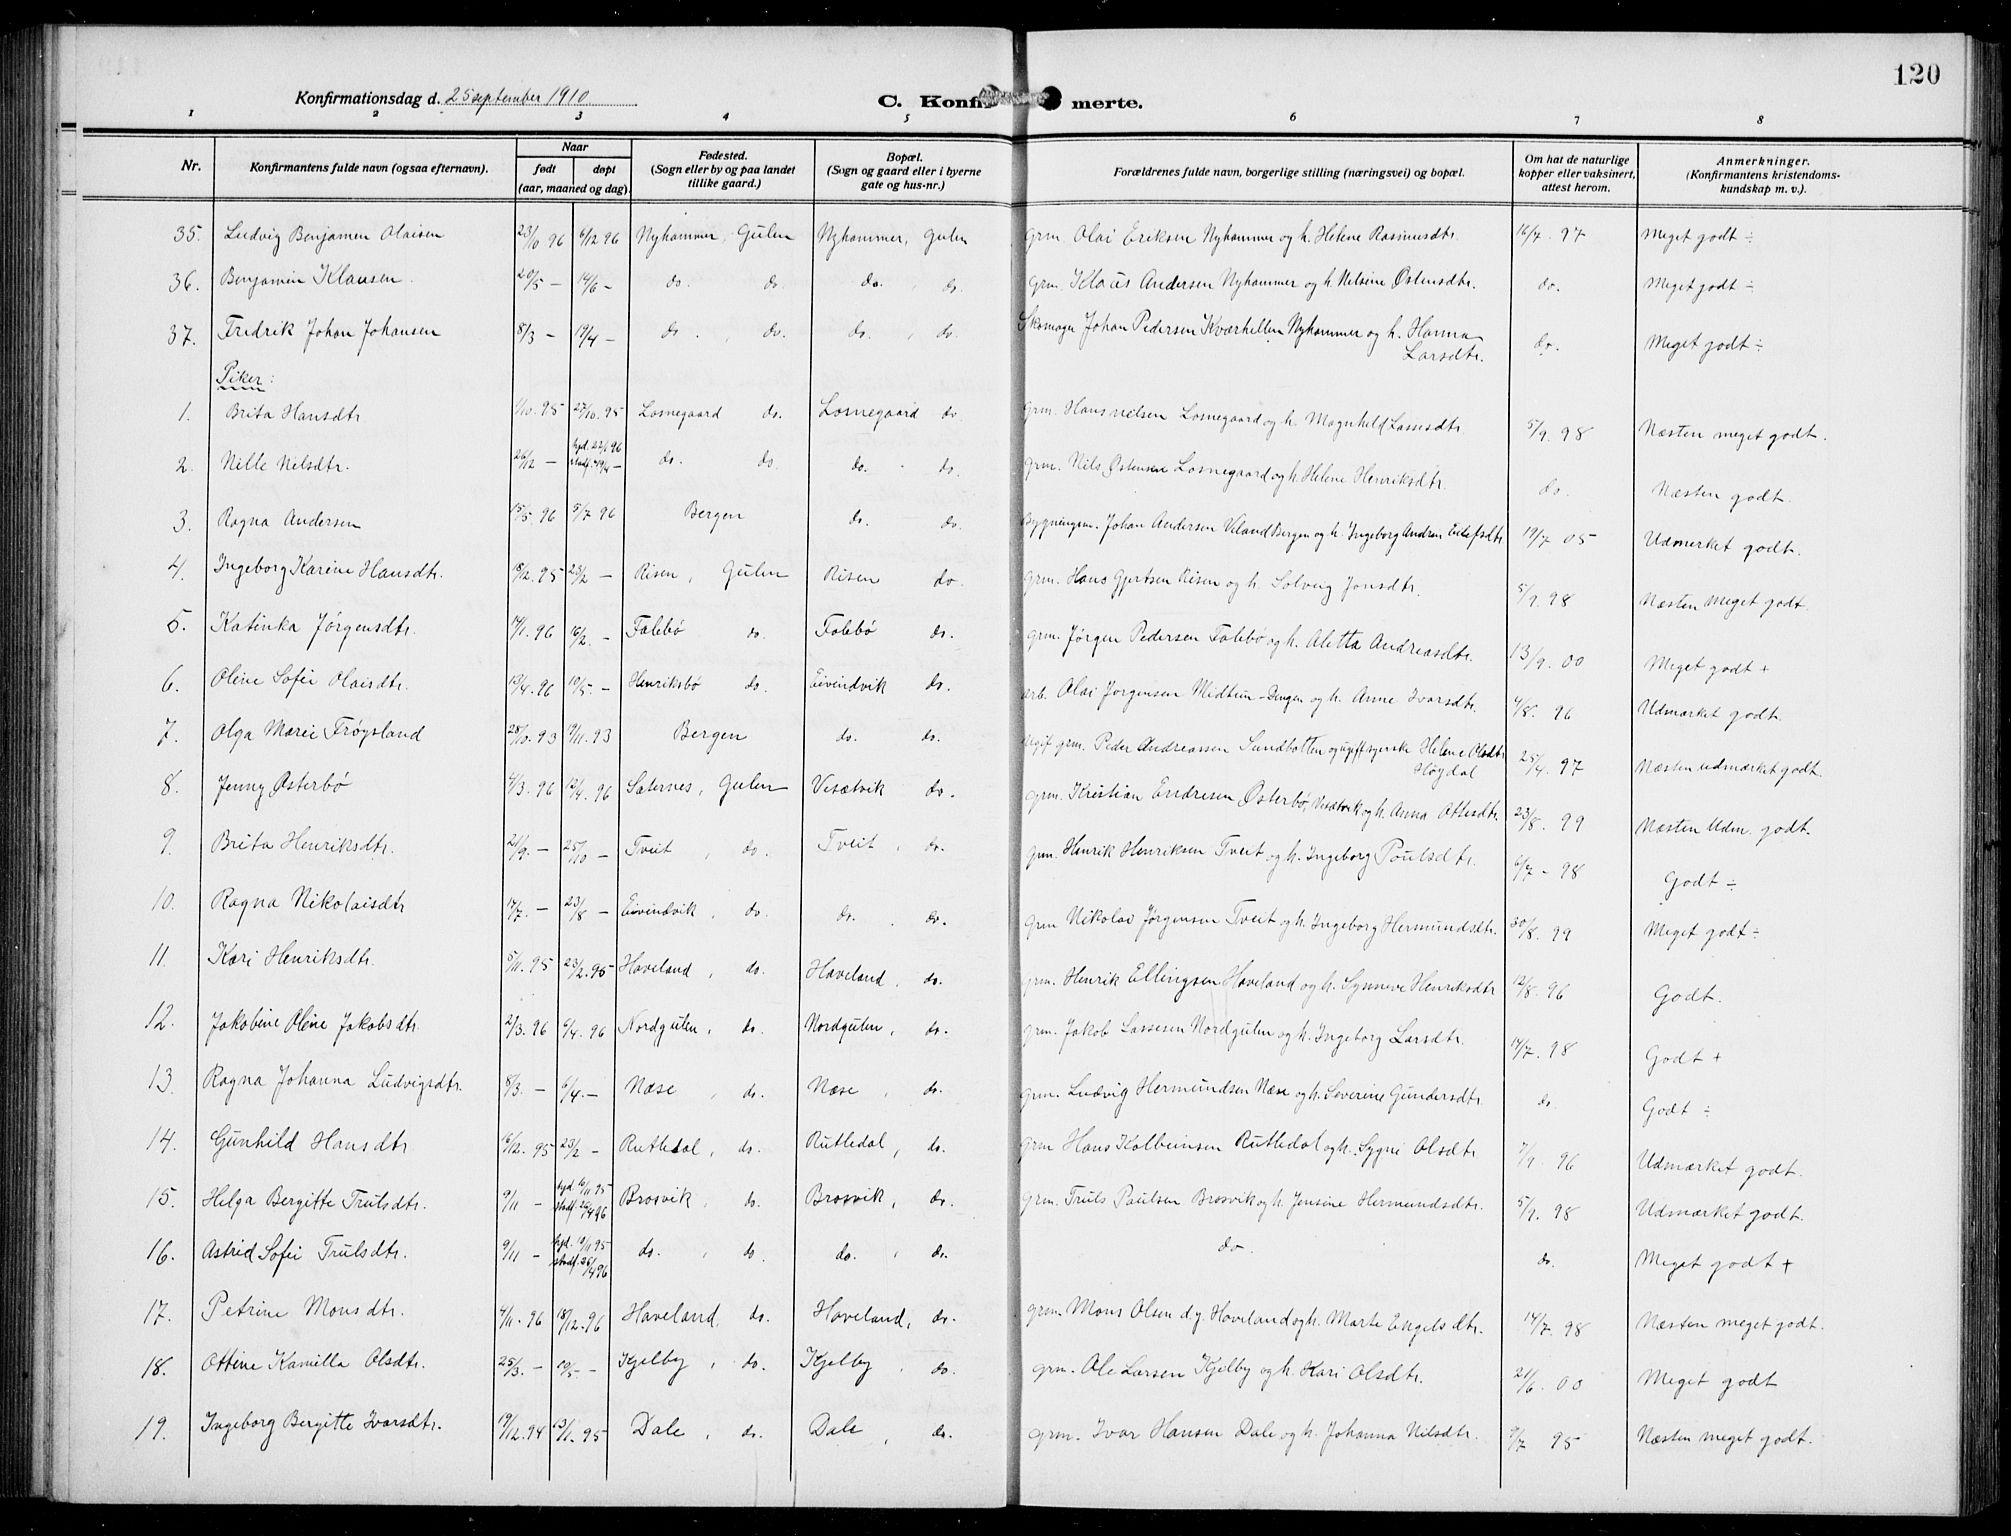 120
Konfirmationsdag d. 25 september 1910.
C. Konfi merte.
1 2 3 4 5 6 7 8
Nr. Konfirmantens fulde navn (ogsaa efternavn). Naar født døpt (aar, maaned og dag). Fødested. (Sogn eller by og paa landet tillike gaard.) Bopæl. (Sogn og gaard eller i byerne gate og hus-nr.) Forældrenes fulde navn, borgerlige stilling (næringsvei) og bopæl. Om hat de naturlige kopper eller vaksinert, attest herom. Anmerkninger. (Konfirmantens kristendoms-kundskap m. v.).
35. Ludvig Benjamen Olaisen 23/10 96 6/12 96 Nyhammer, Gulen Nyhammer, Gulen grm. Olai Eriksen Nyhammer og h. Helene Rasmusdtr. 16/7. 97 Meget godt ÷
36. Benjamin Klausen. 20/5 — 14/6 — do. do. do. do. grm. Klaus Andersen Nyhammer og h. Nelsine Østensdtr. do. Meget godt ÷
37. Fredrik Johan Johansen 8/3 — 19/4 — do. do. do. do. Skomager Johan Pedersen Kværhellen Nyhammer og h. Hanna Larsdtr. do. Meget godt ÷
Piker:
1. Brita Hansdtr. 1/10. 95 27/10. 95 Losnegaard do. Losnegaard do grm. Hans Nelsen Losnegaard og h. Magnhild Lassesdtr. 5/9. 98 Næsten meget godt.
2. Nille Nilsdtr. 26/12 — hjd. 22/1 96 stadf. 19/4 — do. do. do. do. grm. Nils Østensen Losnegaard og h. Helene Henriksdtr. do. Næsten godt.
3. Ragna Andersen 15/5. 96 5/7 96 Bergen do. do. Bygningsm. Johan Andersen Veland Bergen og h. Ingeborg Andrea Eilefsdtr 19/7 05 Udmerket godt.
4. Ingeborg Karine Hansdtr. 18/2. 95 23/2 — Risen, Gulen Risen do. grm. Hans Gjertsen Risen og h. Solveig Jonsdtr. 5/9. 98 Næsten meget godt.
5. Katinka Jørgensdtr. 14/1. 96 16/2. — Falebø do. Falebø do. grm. Jørgen Pedersen Falebø og h. Aletta Andreasdtr. 13/9. 00 Meget godt +
6. Oline Sofie Olaisdtr. 13/4. 96 10/5. — Henriksbø do. Eivindvik do. arb. Olai Jørgensen Midtun-Dingen og h. Anne Ivarsdtr. 4/8. 96 Udmærket godt.
7. Olga Marie Frøysland 28/10. 93 19/11. 93 Bergen do. do. ugif. grm. Peder Andreassen Sundbotten og ugift syerske Helene Olsdtr Høydal 25/4. 97 Næsten udmærket godt.
8. Jenny Østerbø 4/3. 96 12/4. 96 Sæternes, Gulen Visætvik do. grm. Kristian Endresen Østerbø, Visætvik og h. Anna Ottesdtr. 23/8. 99 Næsten Udm. godt.
9. Brita Henriksdtr. 21/9. — 25/10 — Tveit, do. Tveit, do. grm. Henrik Henriksen Tveit og h. Ingeborg Poulsdtr. 6/7 - 98 Godt ÷
10. Ragna Nikolaisdtr 14/7. — 23/8 — Eivindvik, do. do. do. grm Nikolai Jørgensen Tveit og h. Ingeborg Hermundsdtr. 30/8. 99 Meget godt ÷
11. Kari Henriksdtr. 5/11. 95 23/2. 95 Haveland, do. Haveland, do. grm. Henrik Ellingsen Haveland og h. Synneve Henriksdtr 12/8. 96 Godt.
12. Jakobine Oline Jakobsdtr. 2/3. 96 6/4. 96 Nordgulen, do. Nordgulen, do. grm. Jakob Lassesen Nordgulen og h. Ingeborg Larsdtr. 14/7. 98 Godt +
13. Ragna Johanna Ludvigsdtr. 8/3. — 6/4. — Næse, do. Næse, do. grm. Ludvig Hermundsen Næse og h. Severine Gundersdtr. do. Godt ÷
14. Gunhild Hansdtr 16/12. 95 23/2 — Rutledal, do. Rutledal, do. grm Hans Kolbeinsen Rutledal og h. Sygni Olsdtr 7/9. 96 Udmærket godt.
15. Helga Bergitte Trulsdtr. 9/11 — hjd. 10/11 95 stadf. 26/4 96 Brosvik, do. Brosvik, do. grm. Truls Paulsen Brosvik og h. Jensine Hermundsdtr. 5/9. 98 Udmærket godt.
16. Astrid Sofie Trulsdtr. 9/11 — hjd. 10/11 95 stadf. 26/4 96 do. do. do. do. do. do. Meget godt +
17. Petrine Monsdtr. 4/11. 96 18/12. 96 Haveland, do. Haveland, do. grm. Mons Olsen d.y. Haveland og h. Marte Engelsdtr. 14/7. 98 Næsten meget godt.
18. Ottine Kamilla Olsdtr. 25/3. — 10/5 — Kjelby, do. Kjelby, do. grm. Ole Larsen Kjelby og h. Kari Olsdtr. 21/6. 00 Meget godt
19. Ingeborg Bergitte Ivarsdtr. 19/12. 94 13/1. 95 Dale, do. Dale, do. grm. Ivar Hansen Dale og h. Johanna Nilsdtr. 9/7 95 Næsten meget godt.